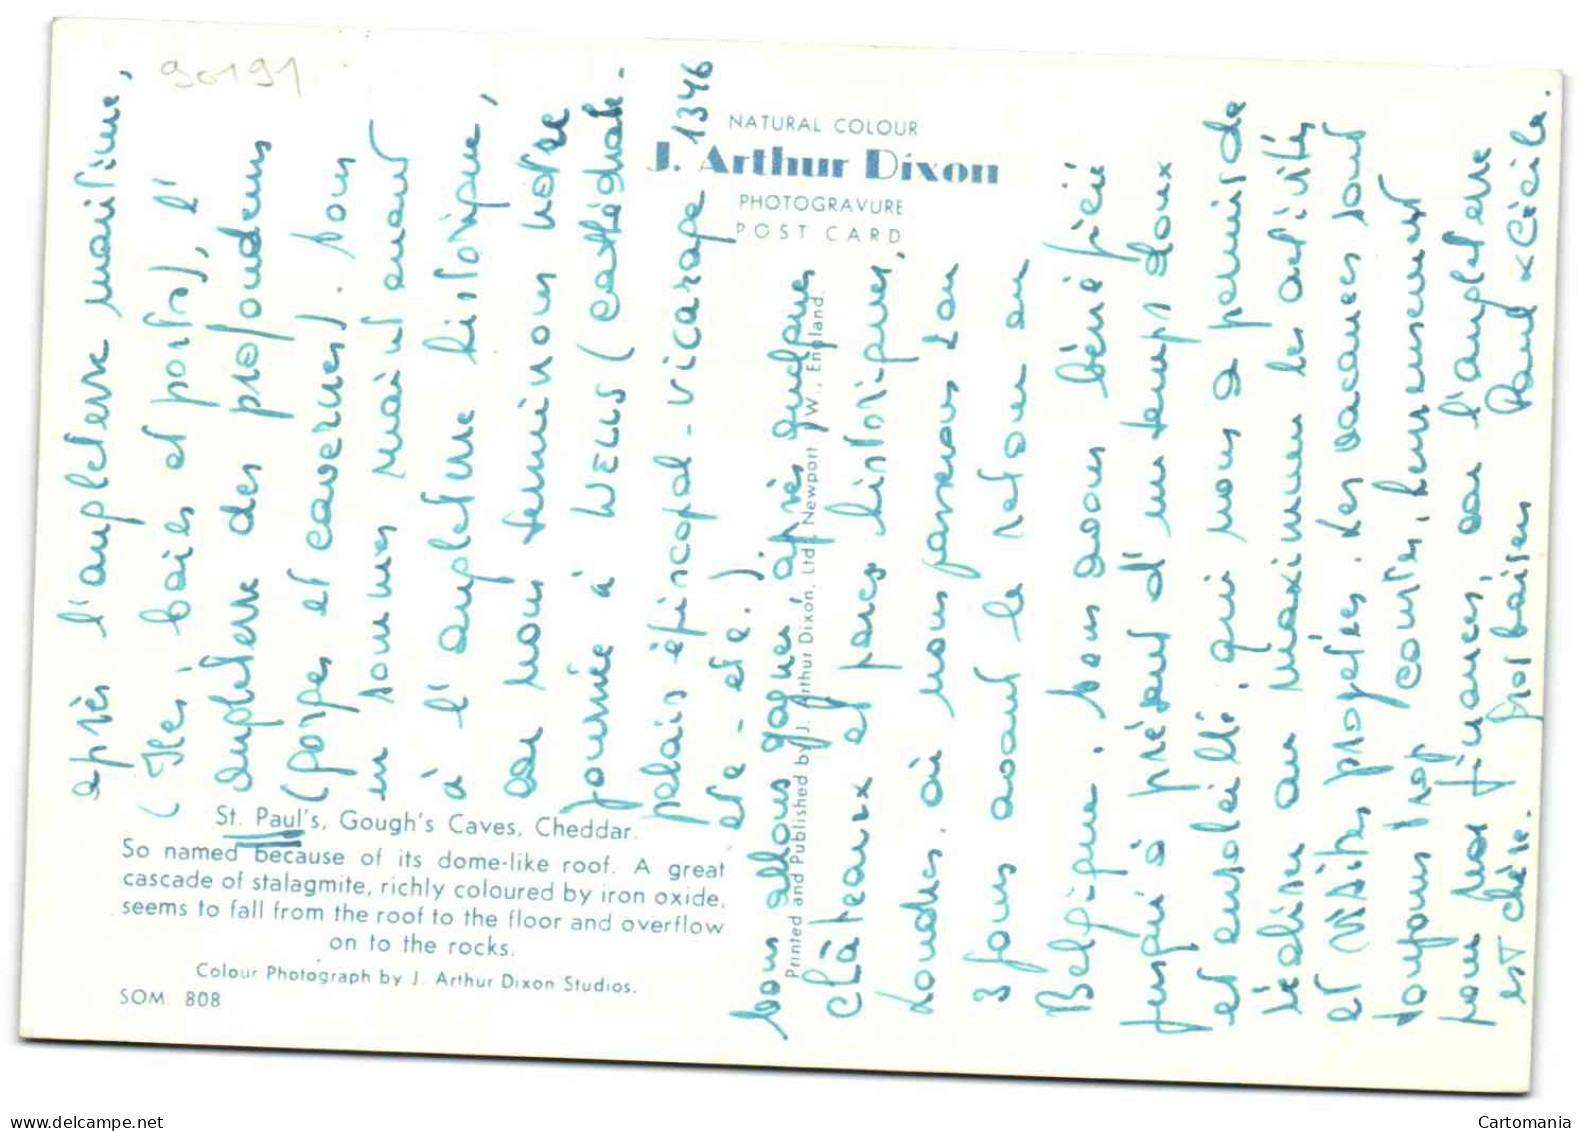 90191
NATURAL COLOUR
J. Arthur Dixon
PHOTOGRAVURE
POST CARD
après l'angleterre maritime,
(Iles, baies et ports), l'
angleterre des profondeurs
(gorges et cavernes). Nous
en sommes maintenant
à l'angleterre historique,
car nous terminons notre
journée à WELLS (cathédrale -
palais épiscopal - vicarage 1346
etc - etc.)
Nous allons gagner après quelques
châteaux et parcs historiques,
Londres, où nous passerons 2 ou
3 jours avant le retour en
Belgique. Nous avons bénéficié
jusqu'à présent d'un temps doux
et ensoleillé, qui nous a permis de
réaliser au maximum les activités
et visites projetées. Les vacances sont
toujours trop courtes, heureusement
pour nos finances, car l'angleterre
est chère. Gros baisers Paul & Cécile.
St. Paul's, Gough's Caves, Cheddar.
So named because of its dome-like roof. A great
cascade of stalagmite, richly coloured by iron oxide,
seems to fall from the roof to the floor and overflow
on to the rocks.
Colour Photograph by J. Arthur Dixon Studios.
SOM 808
Printed and Published by J. Arthur Dixon, Ltd., Newport I.W., England.
www.delcampe.net
Cartomania